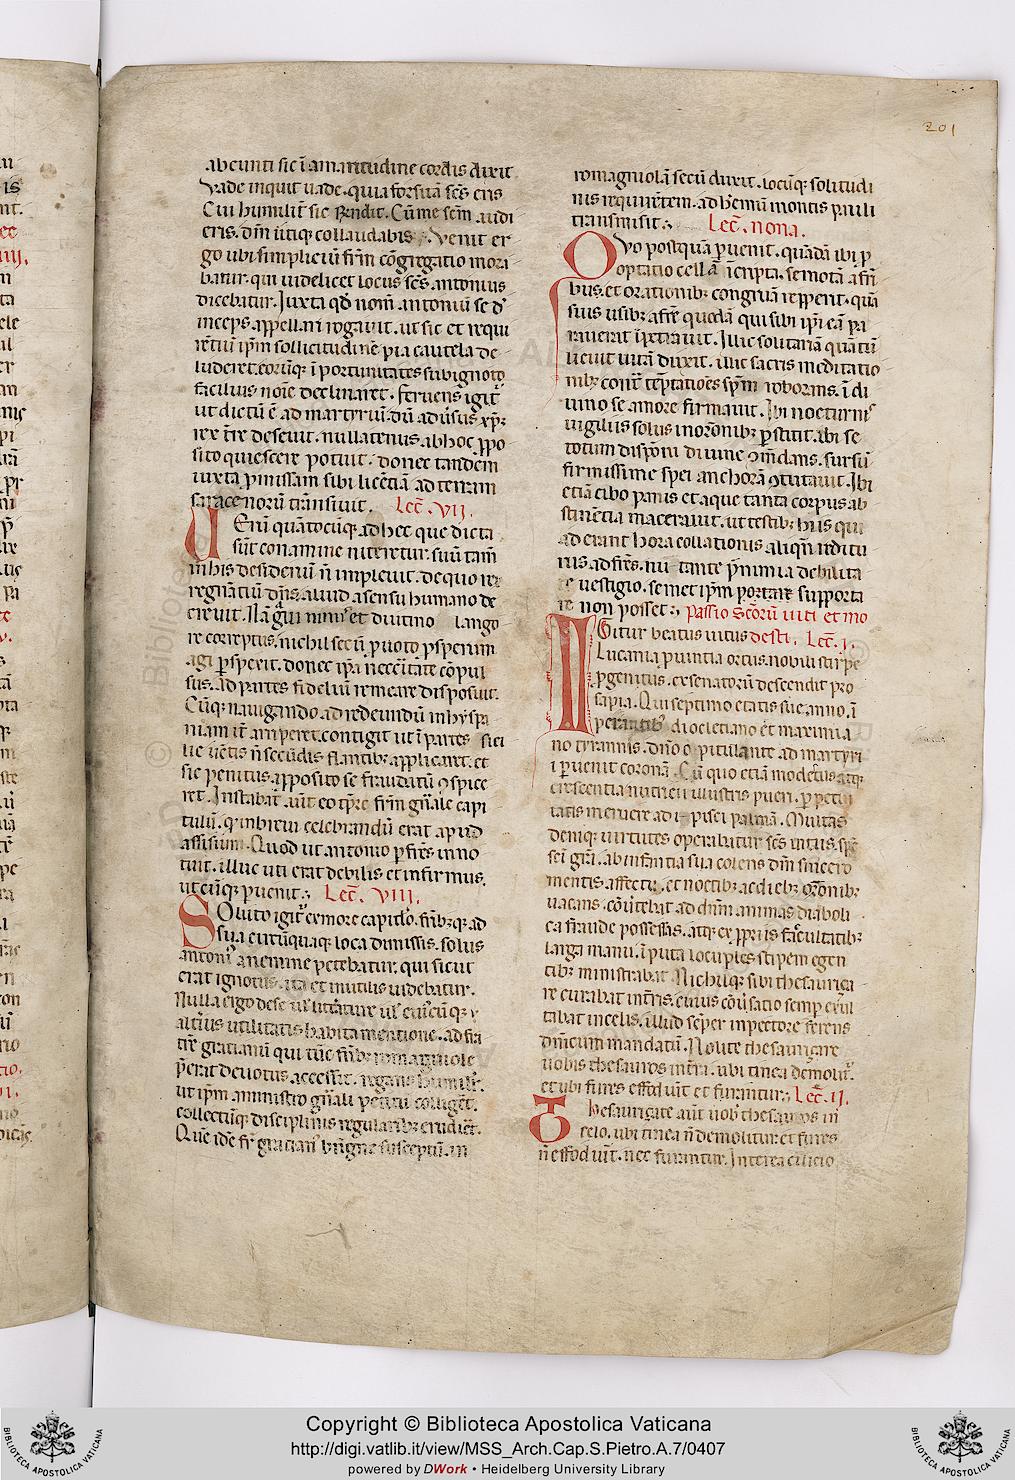 201
abeunti sic ī amaritudine cordis dixit
Vade inquit uade. quia forsuā scs̄ eris
Cui humilit̄ sic rn̄dit. Cū me scm̄ audi
eris. dm̄ utiq; collaudabis. Venit er
go ubi simpliciū frm̄ cōgregatio mora
batur. qui uidelicet locus scs̄ antonius
dicebatur. Iuxta qd̄ nom̄ antoniū se d̄
inceps appellari rogauit. ut sic et requi
rētiū ip̄m sollicitudinē pia cautela de
luderet. eorūq; īportunitates sub ignoto
facilius noīe declinaret. feruens igit̄
ut dictū ē ad martyriū. dū ad usus xp̄i
rex tr̄e deseuit. nullatenus. ab hoc ꝓpo
sito quiescere potuit. donec tandem
iuxta ꝓmissam sibi licētiā ad terram
saracenorū trānsiuit. Lec̄. VII.
Uerū quātocūq; ad hec que dicta
sūt conamine niteretur. suū tam̄
in his desideriū n̄ impleuit. de quo re
regnātiū dn̄s aliud a sensu humano de
creuit. Nā graui nimis et diutino lango
re correptus. nichil secū ꝓuoto ꝓsperum
agi ꝑspexit. donec ip̄a necc̄itate cōpul
sus. ad partes fideliū remeare disposuit.
Cūq; nauigando. ad redeundū in hyspa
niam it̄ arriperet. contigit ut ī partes sici
lie uētis n̄ secūdis flantibz applicaret. et
sic penitus. a ꝓposito se fraudatū ꝯspice
ret. Instabat aūt eo tp̄re frm̄ gn̄ale capi
tulū. qd̄ in breui celebrandū erat apud
assisium. Quod ut antonio ꝑ frēs inno
tuit. illuc uti erat debilis et infirmus.
utcūq; ꝑuenit. Lec̄. VIII.
Soluto igit̄ ex more capitulo. frībz q; ad
sua eūtūquaq; loca dimissis. solus
antoni' a nemine petebatur. qui sicut
erat ignotus. ita et inutilis uidebatur.
Nulla ergo de se ul̄ litt̄ature ul̄
alt̄ius utilitatis habita mentione. ad frā
trē gratianū qui tūc frībz romagniole
p̄erat deuotus accessit. rogans humilit̄.
ut ip̄m a ministro gn̄ali petitū colliget̄.
collectūq; disciplinis regularibz erudiēt.
Quē idē fr̄ gratian' bn̄igne susceptū. in
romagniolā secū duxit. locūq; solitudi
nis requirētem. ad hemū montis pauli
transmisit. Lec̄. nona.
Quo postquā ꝑuenit. quādā ibi ꝑ
optatio cellā ī cripta. semotā a frī
bus. et orationibz congruā repperit. quā
suis usibz a frē quodā qui sibi ip̄i eā pa
rauerat īpetrauit. Illic solitariā quātū
licuit uitā dixit. illic sacris meditatio
nibz cont̄ tēptatiōes sp̄m roborans. ī di
uino se amore firmauit. Ibi nocturnis
uigiliis solus in orōnibz ꝑstitit. ibi se
totum dispōni diuine ꝯmēdans. sursū
firmissime spei anchorā ꝯstituit. Ibi
etiā cibo panis et aque tanta corpus ab
stinētia macerauit. ut testibz hiis qui
aderant hora collationis aliqn̄ reditu
rus ad frēs. nu tante p̄ nimia debilita
te uestigio. semet ip̄m portare supporta
re non posset. Passio scōrū uiti et mo
Igitur beatus uitus desti. Lec̄. I.
Lucania ꝓuintia ortus. nobili stirpe
ꝓgenitus. ex senatorū descendit pro
sapia. Qui septimo etatis sue anno. ī
perantibz diocletiano et maximia
no tyrannis. dn̄o opitulante ad martyri
i ꝑuenit coronā. Cū quo etiā modestus atq;
crescentia nutrien illustris pueri. ꝑ petui
tatis meruere adipisci palmā. Multas
deniq; uirtutes operabatur scs̄ uitus. spē
sci grā. ab infantia sua colens dm̄ sincero
mentis affectu. et noctibz ac diebz orōnibz
uacans. cōuertebat ad dn̄m animas diaboli
ca fraude possessas. atq; ex ꝓpriis facultatibz
larga manu. īputa locuples stipem egen
tibz ministrabat Nichilq; sibi thesauriça
re curabat in terris. cuius cōūsatio semp exul
tabat in celis. illud sep̄er in pectore ferens
dn̄icum mandatū. Nolite thesauriçare
uobis thesauros in tr̄a. ubi tinea demolit̄.
et ubi fures effodiūt et furantur. Lec̄. II.
Thesauriçate aūt uob̄ thesauros in
celo. ubi tinea n̄ demolitur. et fures
n̄ effodiūt. nec furantur. Interea cilicio
Copyright © Biblioteca Apostolica Vaticana
http://digi.vatlib.it/view/MSS_Arch.Cap.S.Pietro.A.7/0407
powered by DWork • Heidelberg University Library